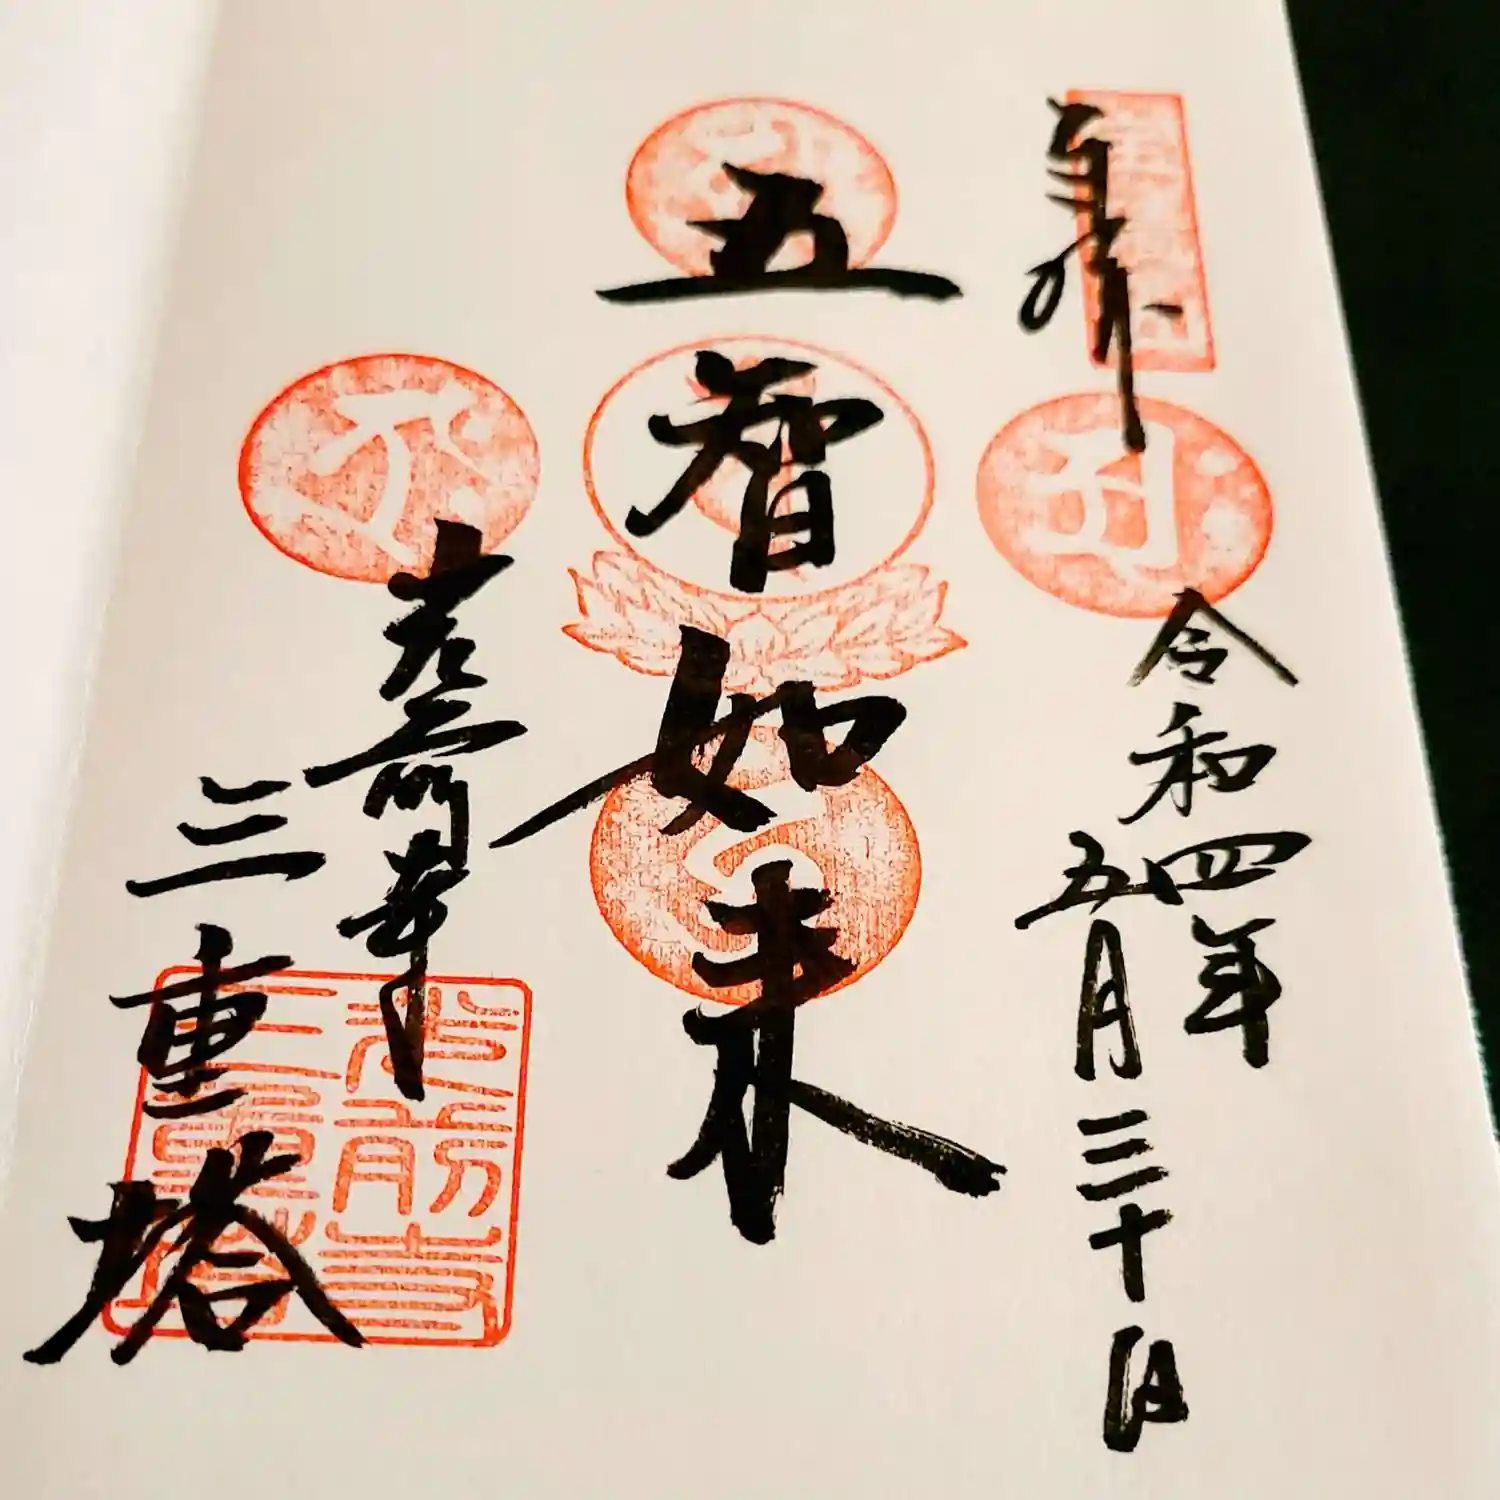 奉拝
令和四年
五月三十日
五智如来
光前寺
三重塔
光前寺
三重塔